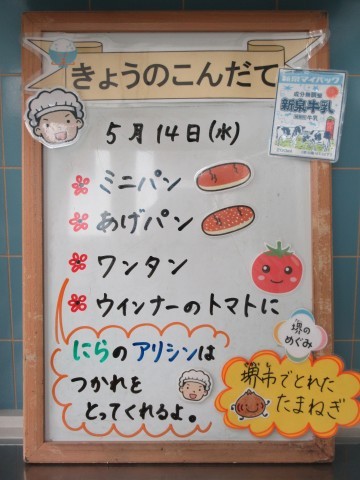 きょうのこんだて
新泉マイパック
成分無調整
新泉牛乳
5月14日(水)
ミニパン
あげパン
ワンタン
ウインナーのトマトに
にらのアリシンは
つかれを
とってくれるよ。
堺の
めぐみ
堺市でとれた
たまねぎ